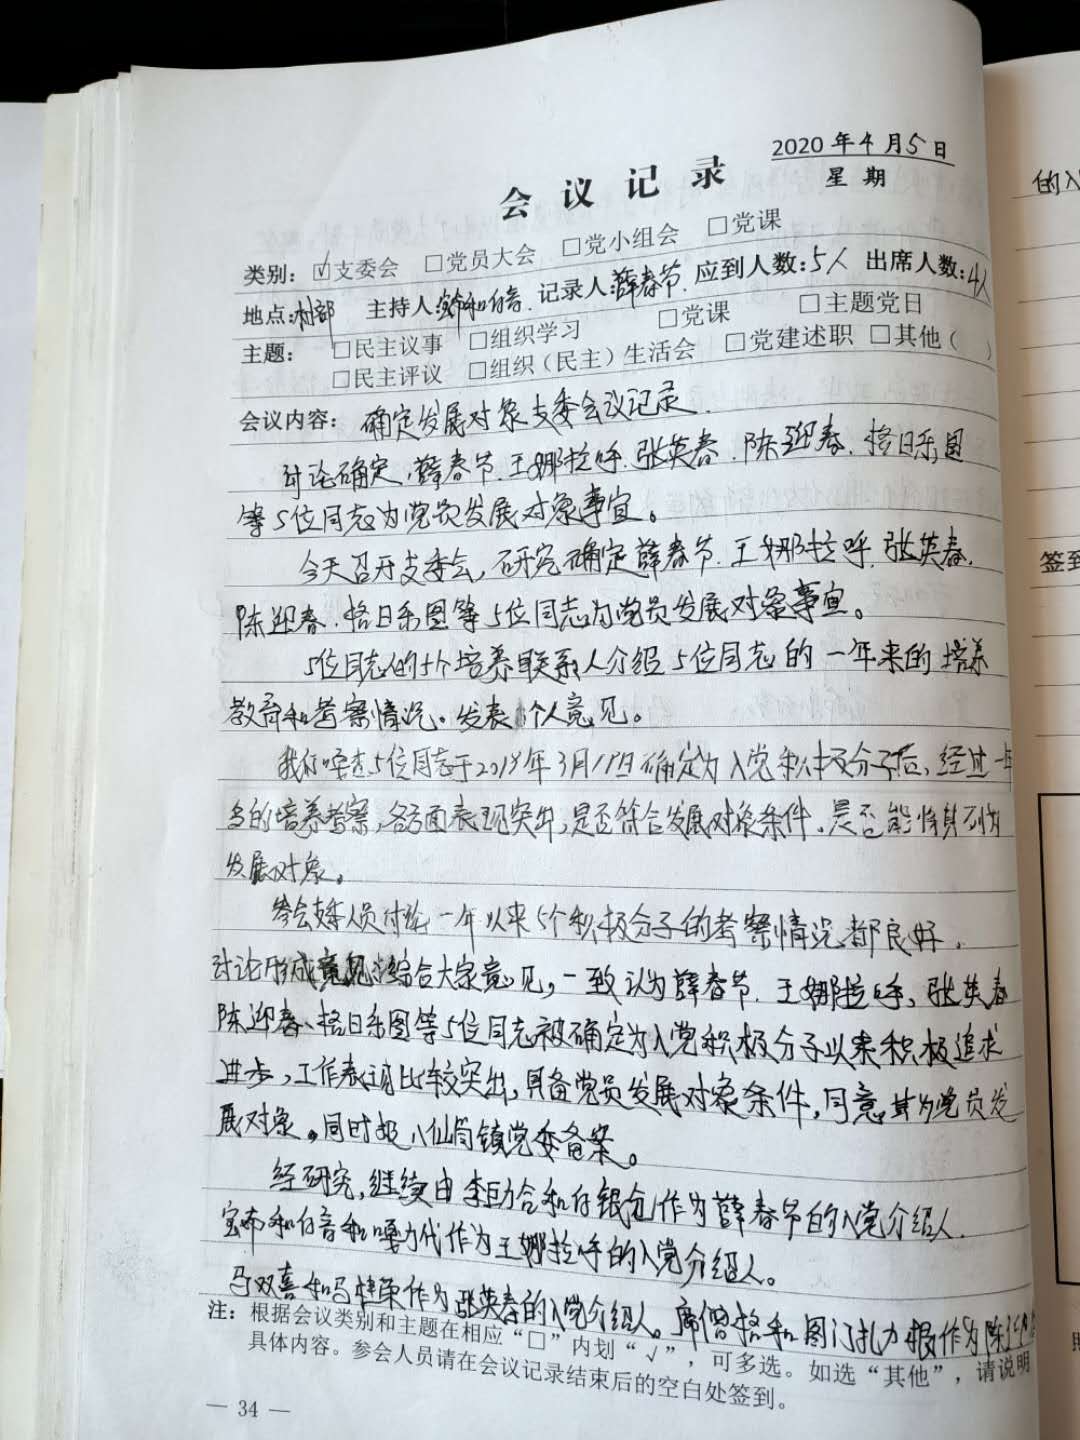 2020 年 4 月 5 日
会议记录 星期
类别：☑支委会 □党员大会 □党小组会 □党课
地点：村部 主持人： 记录人：薛春节 应到人数：5人 出席人数：4人
主题： □民主议事 □组织学习 □党课 □主题党日
□民主评议 □组织（民主）生活会 □党建述职 □其他（ ）
会议内容：确定发展对象支委会议记录.
讨论确定,薛春节.王娜拉呼.张英春.陈迎春.格日乐图
等5位同志为党员发展对象事宜。
今天召开支委会,研究确定薛春节.王娜拉呼.张英春.
陈迎春.格日乐图等5位同志为党员发展对象事宜。
5位同志的5个培养联系人介绍5位同志的一年来的培养
教育和考察情况。发表个人意见。
5位同志于 年3月 日确定为入党积极分子后,经过一年
多的培养考察,各方面表现突出,是否符合发展对象条件.是否能将其列为
发展对象。
参会支委人员讨论一年以来5个积极分子的考察情况都良好.
讨论形成意见 综合大家意见,一致认为薛春节.王娜拉呼,张英春
陈迎春、格日乐图等5位同志被确定为入党积极分子以来积极追求
进步,工作表现比较突出,具备党员发展对象条件,同意其为党员发
展对象。同时报八仙筒镇党委备案。
经研究,继续由 和 作为薛春节的入党介绍人.
和 作为王娜拉呼的入党介绍人。
马双喜和马桂荣作为张英春的入党介绍人。席 格和图门扎力根作为陈迎春
注：根据会议类别和主题在相应“□”内划“√”，可多选。如选“其他”，请说明
具体内容。参会人员请在会议记录结束后的空白处签到。
— 34 —
的入
签到